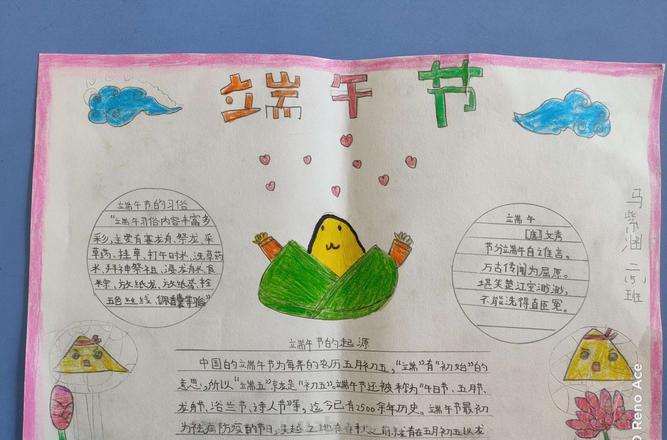 端午节
端午节的习俗
"端午习俗内容丰富多
彩,主要有赛龙舟、祭龙、采
草药、挂草、打午时水、洗草药
水、拜神祭祖、浸龙舟水、食
粽、放纸龙、放纸鸢、拴
五色丝线、佩香囊等"
端午
[唐]文秀
节分端午自谁言,
万古传闻为屈原。
堪笑楚江空渺渺,
不能洗得直臣冤。
马紫涵 二(5)班
端午节的起源
中国的端午节为每年的农历五月初五,"端"有"初始"的
意思,所以"端五"就是"初五"。端午节还被称为"午日节、五月节、
龙舟节、浴兰节、诗人节"等,迄今已有2500余年历史,端午节最初
为祛病防疫的节日,吴越之地在春秋之前就有在五月初五以龙
O Reno Ace